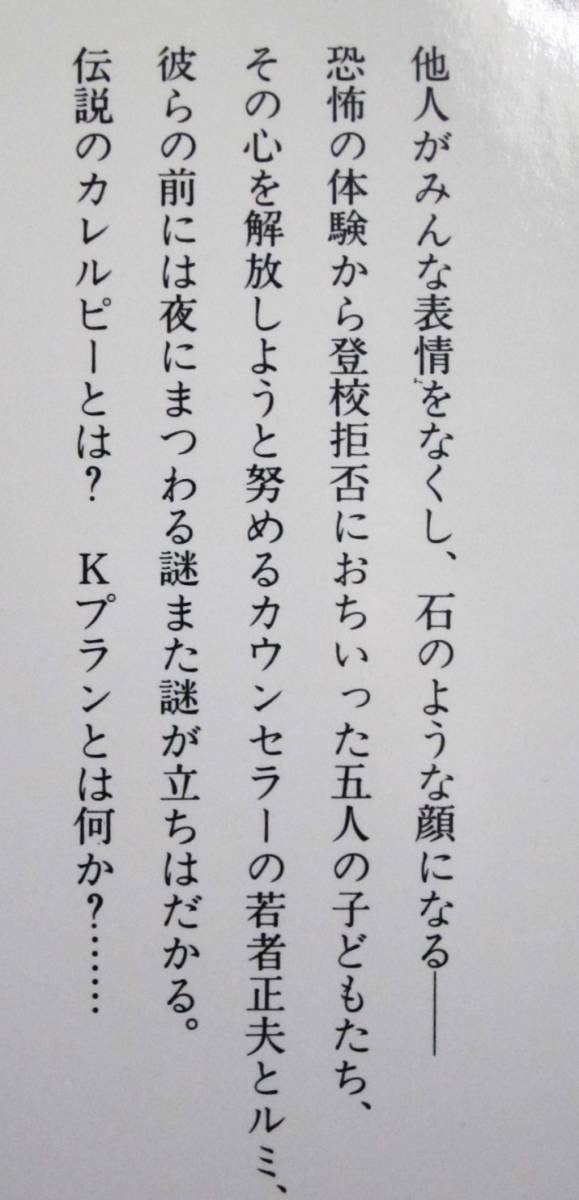 他人がみんな表情をなくし、石のような顔になる――
恐怖の体験から登校拒否におちいった五人の子どもたち、
その心を解放しようと努めるカウンセラーの若者正夫とルミ、
彼らの前には夜にまつわる謎また謎が立ちはだかる。
伝説のカレルピーとは？　Kプランとは何か？……